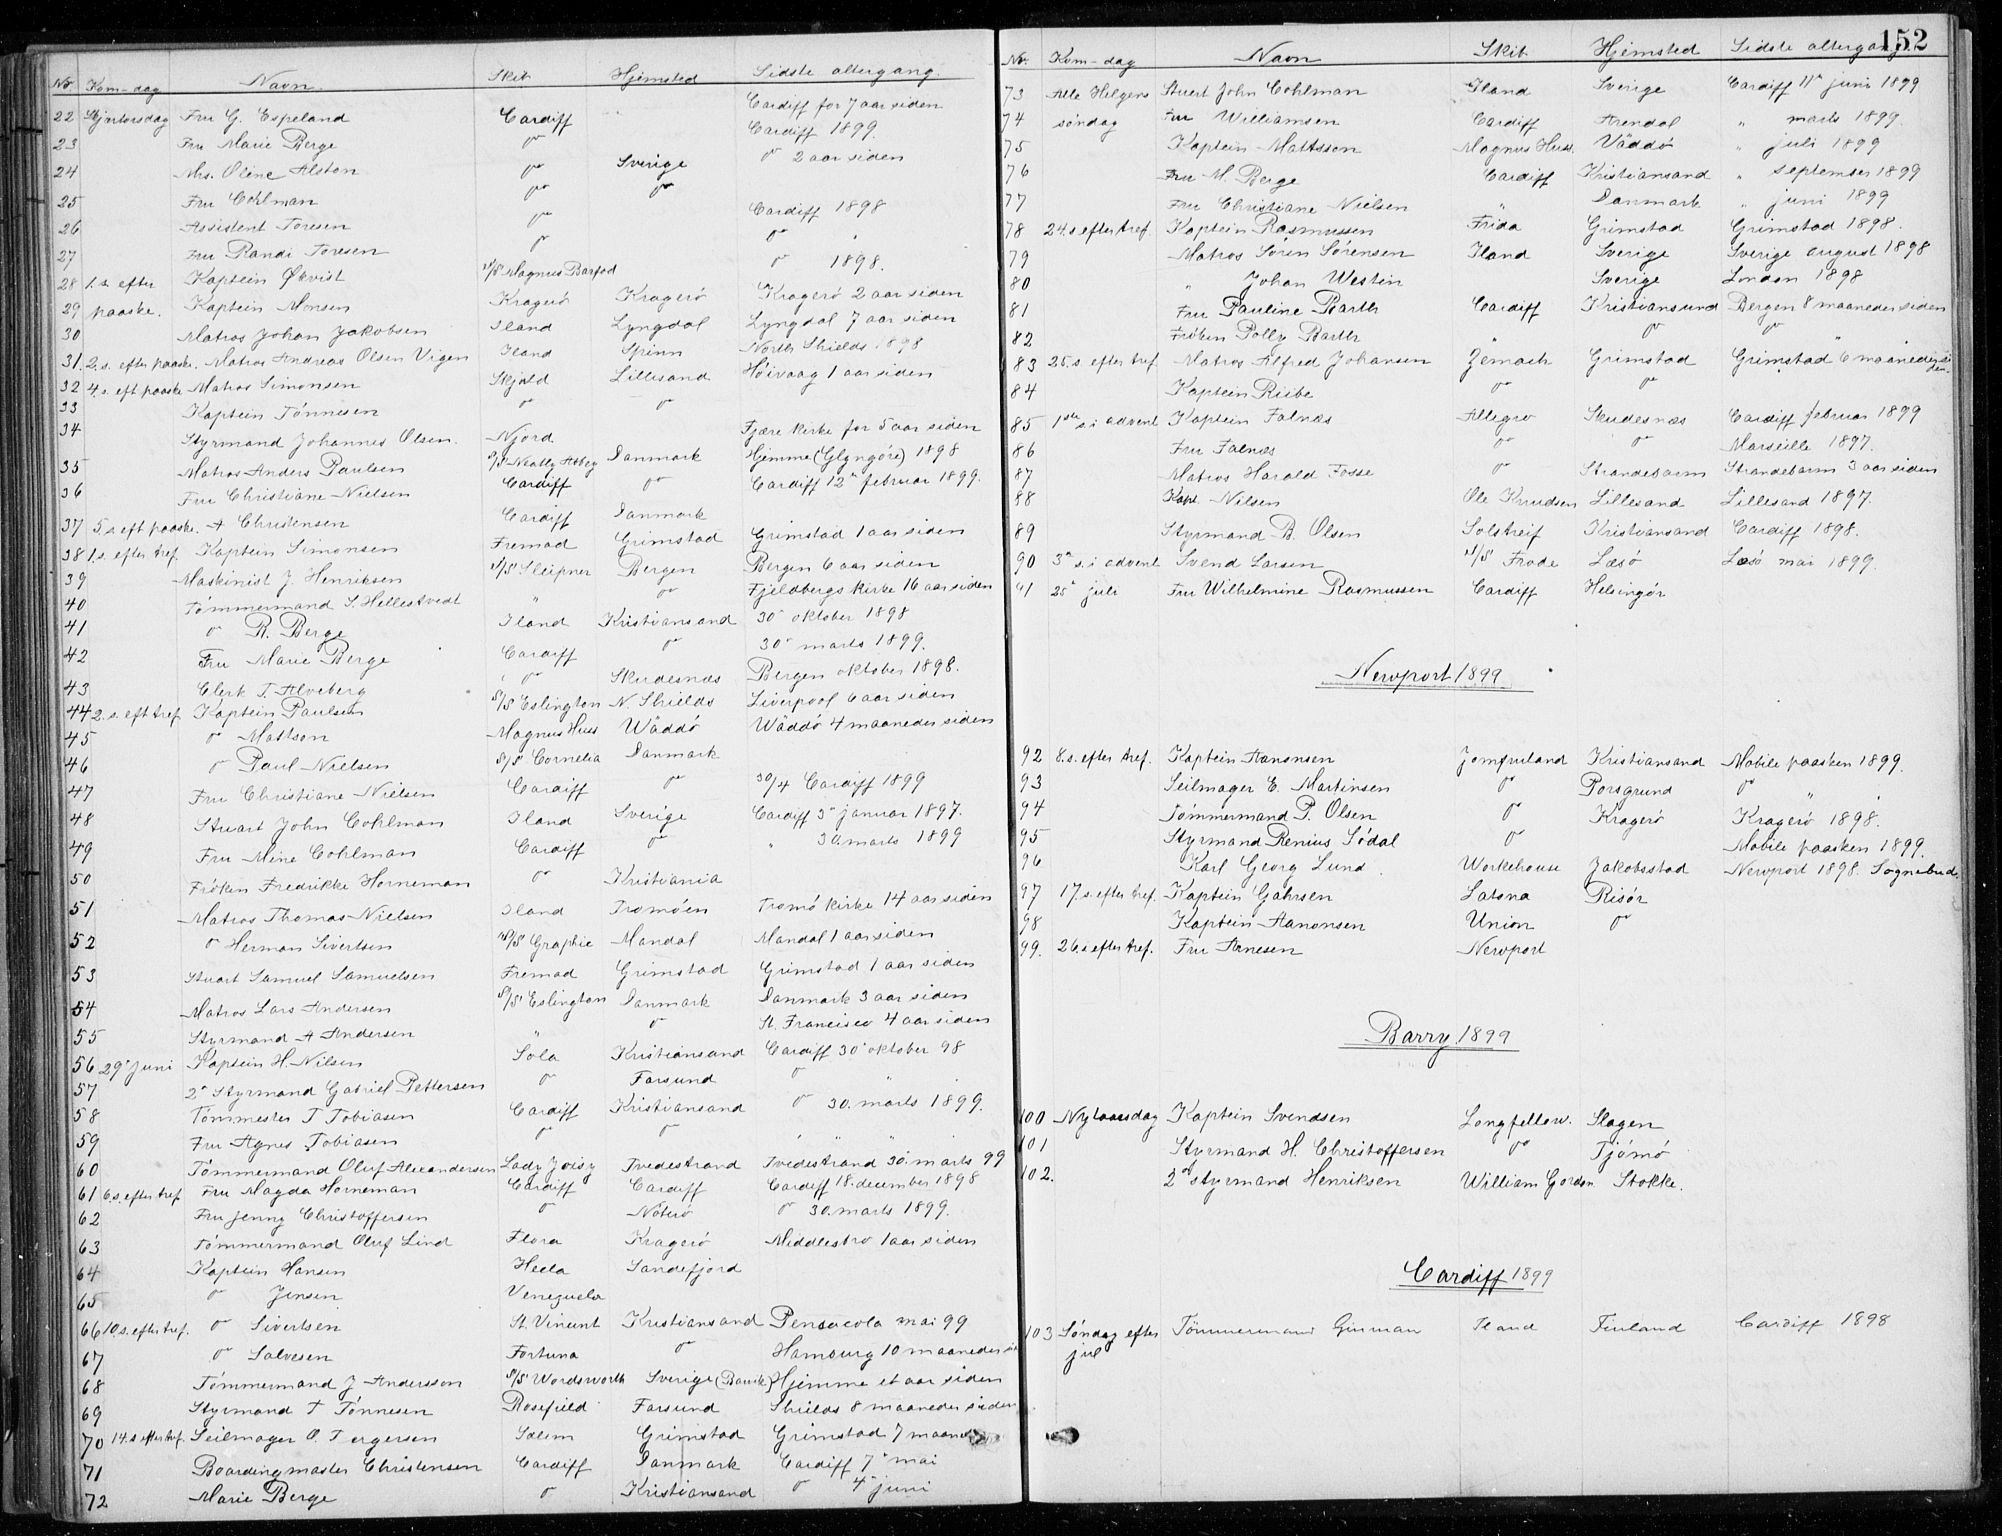 Nr. Kom-dag Navn. Skib Hjemsted Sidste altergang.
22 Skjærtorsdag Fru G. Espeland Cardiff Cardiff for 7 aar siden
23 Fru Marie Berge " Cardiff 1899.
24 Mrs. Oline Alston " Sverige " 2 aar siden
25 Fru Cohlman " "
26 Assistent Toresen " Cardiff 1898
27 Fru Randi Toresen " "
28 1.s. efter Kaptein Økvist S/S Magnus Barfod " 1898.
29 paaske. Kaptein Monsen Kragerö Kragerö Kragerö 2 aar siden
30 Matros Johan Jakobsen Iland Lyngdal Lyngdal 7 aar siden
31. 2. s. efter paaske. Matros Andreas Olsen Vigen Iland Spinn North Shields 1898
32 4. s. eft paaske Matros Simonsen Skjold Lillesand Höivaag 1 aar siden
33 Kaptein Tönnesen " "
34 Styrmand Johannes Olsen. Njord Fjære kirke for 5 aar siden
35 Matros Anders Paulsen S/S Neatly Abbey Danmark Hjemme (Glyngöre) 1898
36 Fru Christiane Nielsen Cardiff " Cardiff 12" februar 1899.
37 5. s. eft paaske. A Christensen Cardiff Danmark
38 1. s. efter tref. Kaptein Simonsen Fremad Grimstad Grimstad 1 aar siden
39 Maskinist J. Henriksen S/S Sleipner Bergen Bergen 6 aar siden
40 Tömmermand S. Hellestvedt " " Fjeldbergs kirke 16 aar siden
41 " R. Berge Iland Kristiansand 30" oktober 1898
42 Fru Marie Berge Cardiff " 30" marts 1899.
43 Clerk T. Alveberg " Skudesnæs Bergen oktober 1898.
44 2. s. eft tref Kaptein Paulsen S/S Eslington N. Shields Liverpool 6 aar siden
45 " Mattson Magnus Huss Wäddö Wäddö 4 maaneder siden
46 " Paul Nielsen S/S Cornelia Danmark
47 Fru Christiane Nielsen Cardiff " 30/4 Cardiff 1899
48 Stuart John Cohlman Iland Sverige Cardiff 3" januar 1897.
49 Fru Mine Cohlman Cardiff " " 30. marts 1899
50 Fröken Fredrikke Horneman " Kristiania
51 Matros Thomas Nielsen Iland Tromöen Tromö kirke 14 aar siden
52 " Herman Sivertsen S/S Graphic Mandal Mandal 1 aar siden
53 Stuart Samuel Samuelsen Fremad Grimstad Grimstad 1 aar siden
54 Matros Lars Andersen S/S Eslington Danmark Danmark 3 aar siden
55 Styrmand A Andersen " " St. Francisco 4 aar siden
56 29" juni Kaptein H. Nilsen Sola Kristiansand Cardiff 30" oktober 98
57 2" Styrmand Gabriel Pettersen " Farsund " "
58 Tömmester T Tobiasen Cardiff Kristiansand " 30. marts 1899.
59 Fru Agnes Tobiasen " " " " "
60 Tömmermand Oluf Alexandersen Lady Joisy Tvedestrand Tvedestrand 30. marts 99
61 6. s. efter tref Fru Magda Horneman Cardiff Cardiff Cardiff 18. december 1898
62 Fru Jenny Christoffersen " Nöterö " 30. marts 1899.
63 Tömmermand Oluf Lind Flora Kragerö Middlesbro 1 aar siden
64 Kaptein Hansen Hecla Sandefjord
65 " Jensen Venezuela
66 10. s. efter tref. " Sivertsen St. Vincent Kristiansand Pensacola mai 99
67 " Salvesen Fortuna " Hamburg 10 maaneder
68 Tömmermand J Andersson S/S Wordsworth Sverige Hjemme et aar siden
69 Styrmand T Tönnesen Rosefield Farsund Shields 8 maaneder siden
70 14. s efter tref. Seilmager O. Tergersen Salem Grimstad Grimstad 7
71 Boardingmaster Christensen Cardiff Danmark Cardiff 7" mai
72 Marie Berge " Kristiansand " 4" juni
152
Nr. Kom-dag Navn Skib Hjemsted Sidste altergang
73 Alle Helgens Stuert John Cohlman Iland Sverige Cardiff 11" juni 1899
74 söndag Fru Williamsen Cardiff Arendal " marts 1899.
75 Kaptein Mattsson Magnus Huss. Väddö " juli 1899
76 Fru M. Berge Cardiff Kristiansand " september 1899
77 Fru Christiane Nielsen " Danmark " juni 1899
78 24. s efter tref. Kaptein Rasmussen Frida Grimstad Grimstad 1898.
79 Matros Sören Sörensen Iland Sverige Sverige august 1898
80 " Johan Westin Sverige London 1898
81 Fru Pauline Barth Cardiff Kristiansund Bergen 8 maaneder siden
82 Fröken Polly Barth " " " "
83 25. s. efter tref Matros Alfred Johansen Zemach Grimstad Grimstad 6 maaneder siden.
84 Kaptein Riibe " "
85 1ste s. i advent Kaptein Falnæs Allegro Skudesnæs Cardiff februar 1899
86 Fru Falnæs " " Marseille 1897.
87 Matros Harald Fosse " Strandebarm Strandebarm 3 aar siden
88 Kapt. Nilsen Ole Knudsen Lillesand Lillesand 1897.
89 Styrmand B. Olsen Solstreif Kristiansand Cardiff 1898.
90 3" s. i advent Svend Larsen S/S Frode Læsö Læsö mai 1899.
91 25" juli Fru Wilhelmine Rasmussen Cardiff Helsingör
Newport 1899.
92 8. s. efter tref. Kaptein Aanonsen Jomfruland Kristiansand Mobile paasken 1899.
93 Seilmager E. Martinsen " Porsgrund " " "
94 Tömmermand P. Olsen " Kragerö Kragerö 1898.
95 Styrmand Renius Södal " Mobile paasken 1899.
96 Karl Georg Lund. Workehouse Jakobsstad Newport 1898. Sognebud.
97 17. s. efter tref. Kaptein Gahrsen Latona Risör
98 Kaptein Aanonsen Union "
99. 26. s efter tref. Fru Arnesen Newport
Barry 1899
100 Nytaarsdag Kaptein Svendsen Longfellow. Slagen
101 Styrmand H. Christoffersen " Tjömö
102. 2den styrmand Henriksen William Gordon Stokke.
Cardiff 1899
103 Söndag efter Tömmermand Ginman Iland Finland Cardiff 1898
jul